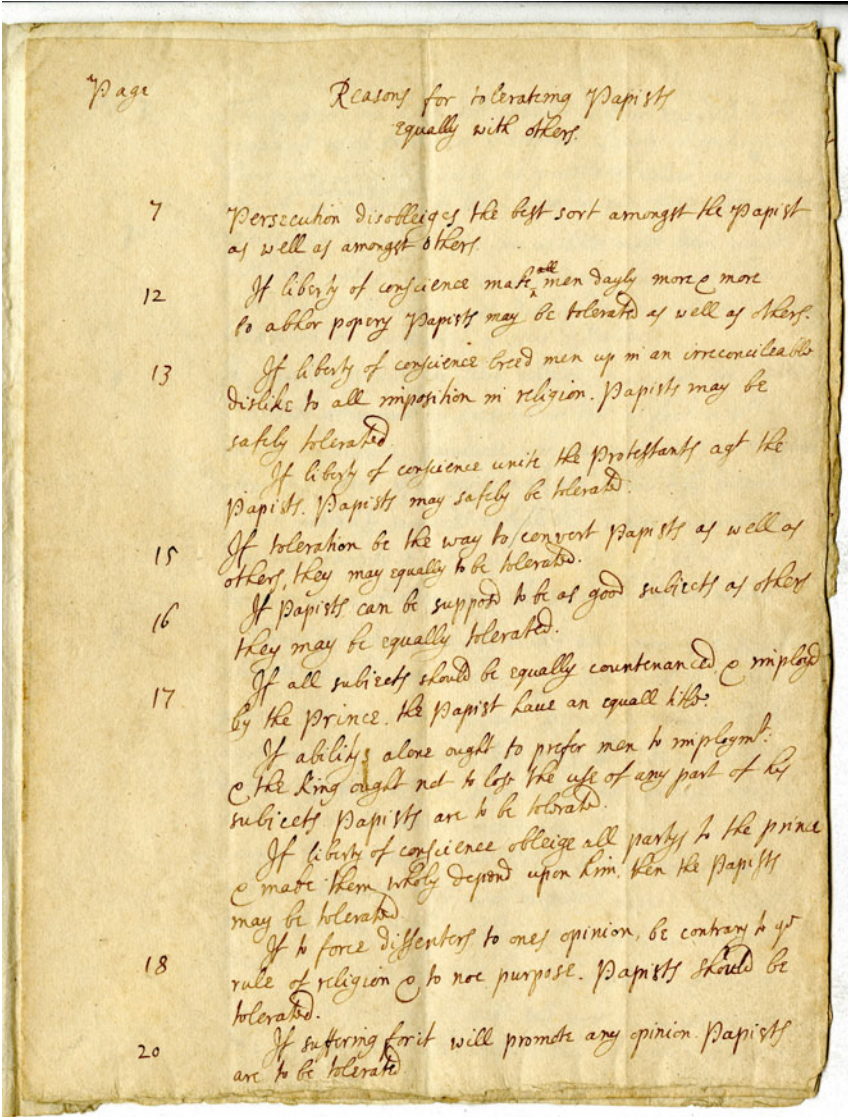 Page
Reasons for tolerateing Papists
equally with others.
7 Persecution disobleiges the best sort amongst the Papist
as well as amongst others.
12 If liberty of conscience make all men dayly more & more
to abhor popery Papists may be tolerated as well as others.
13 If liberty of conscience breed men up in an irreconcileable
dislike to all imposition in religion. Papists may be
safely tolerated.
If liberty of conscience unite the Protestants agt the
Papists. Papists may safely be tolerated.
15 If toleration be the way to convert Papists as well as
others, they may equally to be tolerated.
16 If Papists can be supposd to be as good subjects as others
they may be equally tolerated.
17 If all subjects should be equally countenanced & imployd
by the Prince. the Papist have an equall title.
If abilitys alone ought to prefer men to imploymt:
& the King ought not to lose the use of any part of his
subjects Papists are to be tolerated.
If liberty of conscience obleige all partys to the prince
& make them wholy depend upon him. then the Papists
may be tolerated.
18 If to force dissenters to ones opinion, be contrary to ye
rule of religion & to noe purpose. Papists should be
tolerated.
20 If suffering for it will promote any opinion. Papists
are to be tolerated